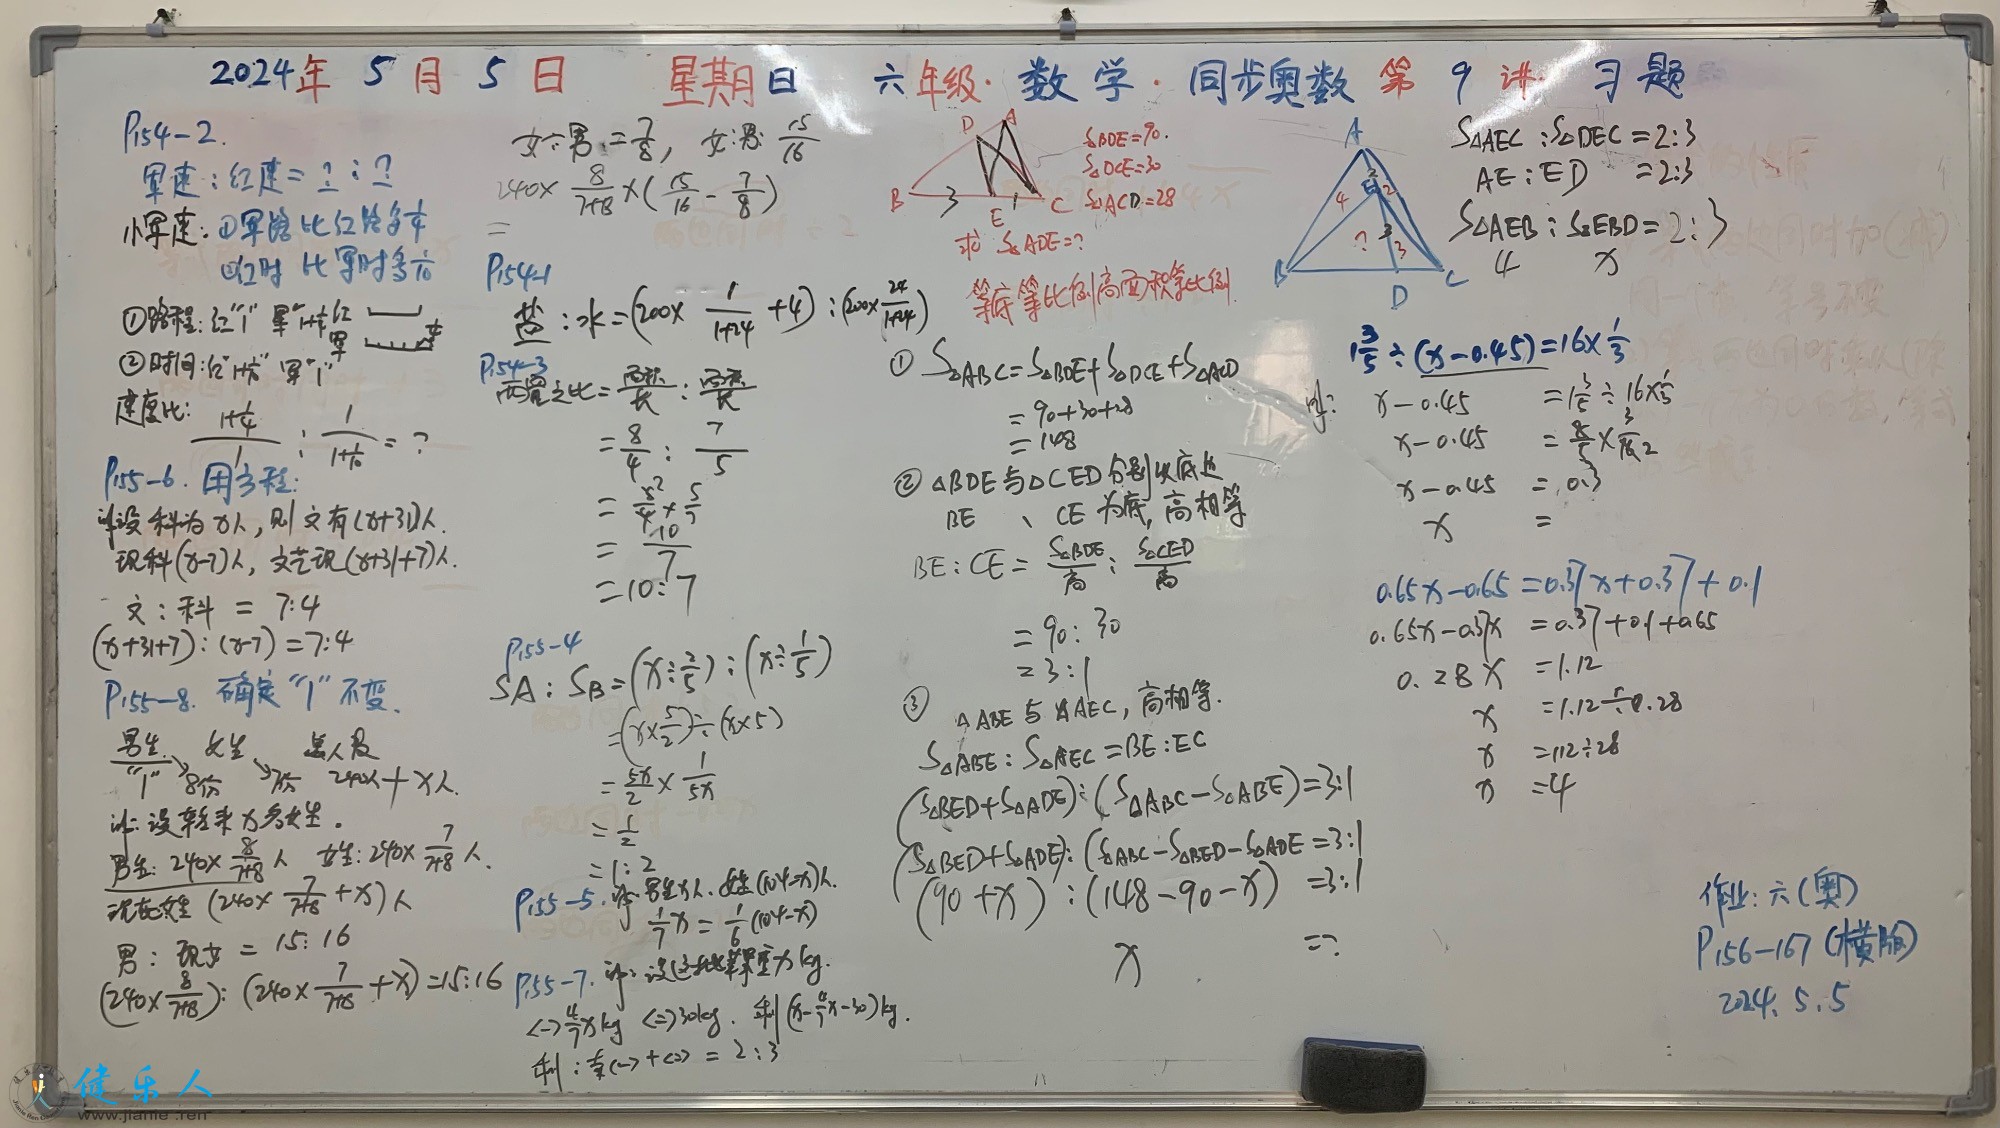 2024年 5 月 5 日 星期日 六年级·数学·同步奥数 第 9 讲· 习题
P154-2.
军速:红速=?:?
①军路比红路多1/4
②红时比军时多1/10
①路程:红"1" 军"1+1/4"
红
军
1/4
②时间:红"1+1/10" 军"1"
速度比: (1+1/4)/1 : 1/(1+1/10) = ?
P155-6. 用方程:
设科为x人,则文有(x+31)人.
现科(x-7)人,文艺现(x+31+7)人.
文:科 = 7:4
(x+31+7):(x-7)=7:4
P155-8. 确定"1"不变.
男生 女生 总人数
"1" 8份 7份 240人+x人.
设转来x名女生.
男生:240×8/(7+8)人 女生:240×7/(7+8)人.
现在女生(240×7/(7+8)+x)人
男:现女=15:16
(240×8/(7+8)):(240×7/(7+8)+x)=15:16
女÷男=7/8, 女:男 15/16
240×8/(7+8)×(15/16-7/8)
=
P154-1
盐:水=(200×1/(1+24)+4):(200×24/(1+24))
P154-3
两宽之比=面积/长:面积/长
=8/4:7/5
=8/4×5/7
=10/7
=10:7
P155-4
SA:SB=(x÷2/5):(x÷1/5)
=(x×5/2)÷(x×5)
=5x/2×1/5x
=1/2
=1:2
P155-5. 男生x人.女生(104-x)人.
1/7x=1/6(104-x)
P155-7. 设这批苹果重x kg.
<一>4/7x kg <二>30kg. 剩(x-4/7x-30)kg.
剩:卖<一>+<二>=2:3
D A
B 3 E 1 C
S△BDE=90.
S△DCE=30
S△ACD=28
求 S△ADE=?
等底等比例高面积等比例
① S△ABC=S△BDE+S△DCE+S△ACD
=90+30+28
=148
② △BDE与△CED分别以底边
BE、CE为底,高相等
BE:CE=S△BDE/高:S△CED/高
=90:30
=3:1
③ △ABE与△AEC,高相等.
S△ABE:S△AEC=BE:EC
(S△BED+S△ADE):(S△ABC-S△ABE)=3:1
(S△BED+S△ADE):(S△ABC-S△BED-S△ADE=3:1
(90+x):(148-90-x)=3:1
x =?
A
4 2 2
E
? 3 3
B D C
S△AEC:S△DEC=2:3
AE:ED =2:3
S△AEB:S△EBD=2:3
4 x
1 3/5÷(x-0.45)=16×1/3
解: x-0.45 =1 3/5÷16×1/3
x-0.45 =8/5×3/16 2
x-0.45 =0.3
x =
0.65x-0.65=0.37x+0.37+0.1
0.65x-0.37x =0.37+0.1+0.65
0.28x =1.12
x =1.12÷0.28
x =112÷28
x =4
作业:六(奥)
P156-167(横版)
2024.5.5
健乐人
www.jianle.ren